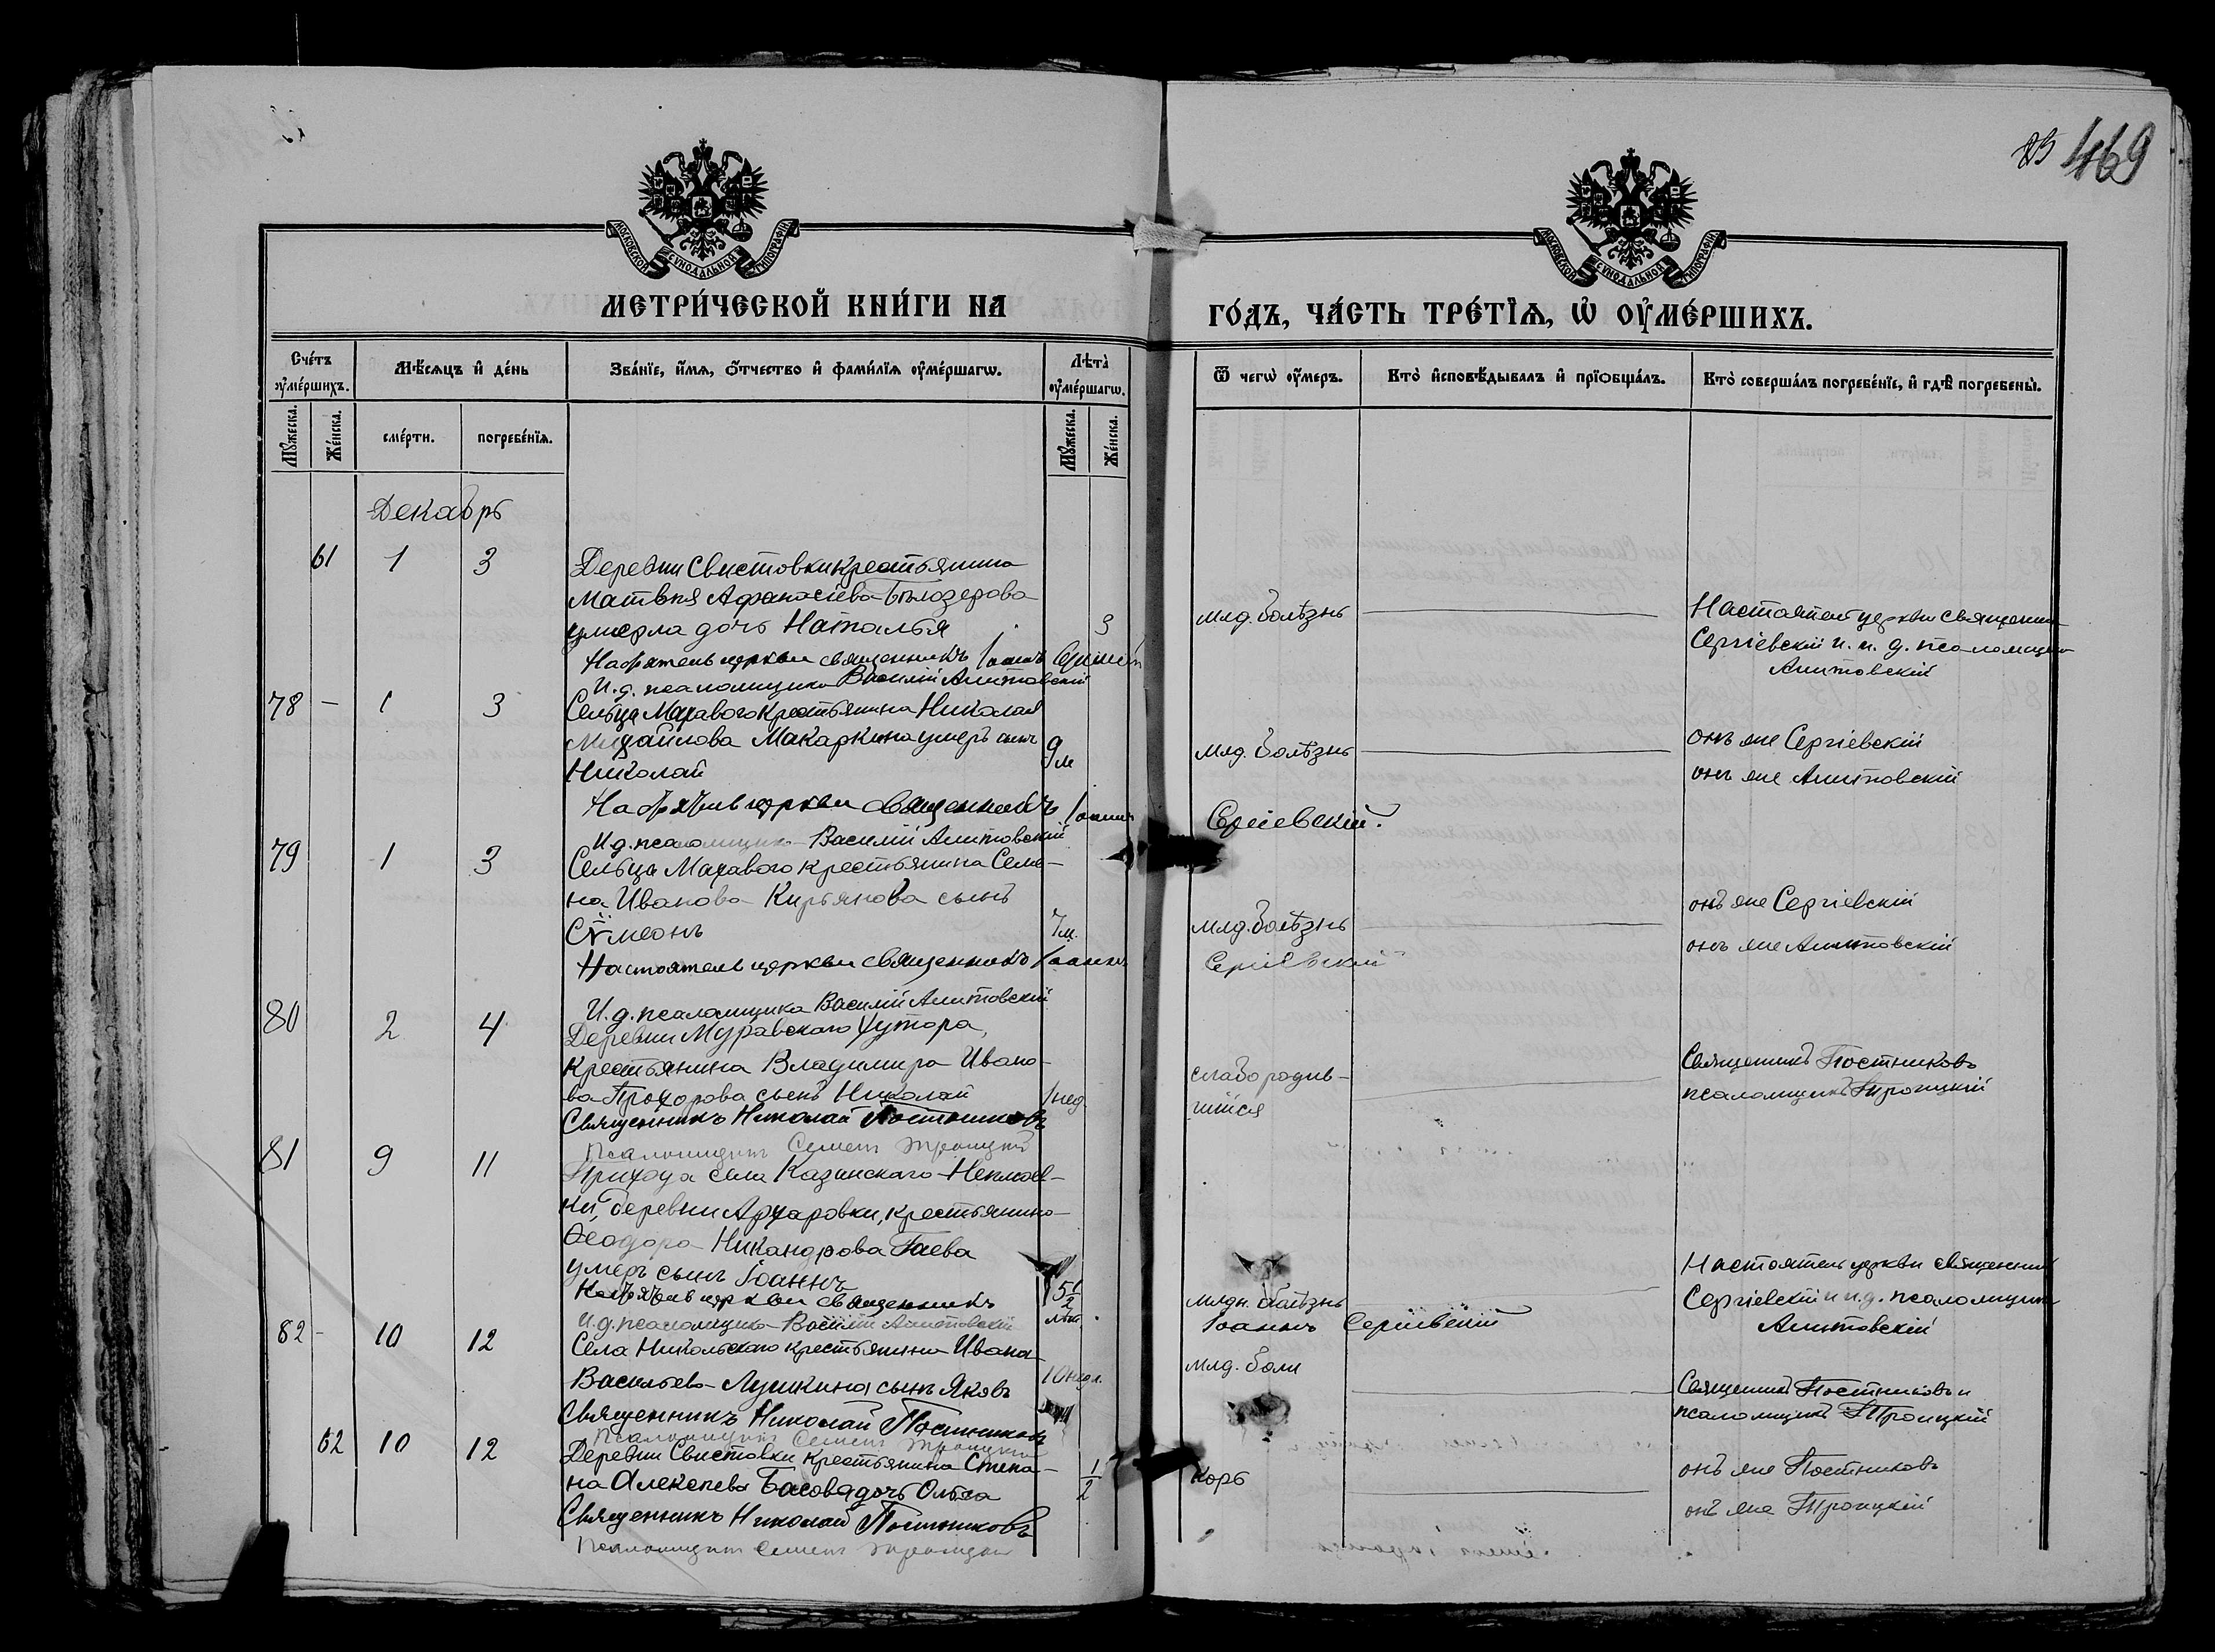 469
МОСКОВСКОЙ СУНОДАЛЬНОЙ ТИПОГРАФІИ
МОСКОВСКОЙ СУНОДАЛЬНОЙ ТИПОГРАФІИ
МЕТРИ́ЧЕСКОЙ КНИ́ГИ НА
ГО́ДЪ, ЧА́СТЬ ТРЕ́ТІѦ, Ѡ҆ ОУ҆МЕ́РШИХЪ.
Сче́тъ оу҆ме́ршихъ.
Мѣ́сѧцъ и҆ де́нь
Зва́нїе, и҆́мѧ, ѻ҆́тчество и҆ фами́лїѧ оу҆ме́ршагѡ.
Лѣта̀ оу҆ме́ршагѡ.
Ѿ чегѡ̀ оу҆́меръ.
Кто̀ и҆сповѣ́дывалъ и҆ прїобща́лъ.
Кто̀ соверша́лъ погребе́нїе, и҆ гдѣ̀ погребены̀.
Мꙋ́жеска.
Же́нска.
сме́рти.
погребе́нїѧ.
Мꙋ́жеска.
Же́нска.
Декабрь
61 1 3 Деревни Свистовки крестьянина
Матвѣя Афанасіева Бѣлозерова
умерла дочь Наталья 3 млд. болѣзнь Настоятель церкви священникъ
Сергіевскій и и. д. псаломщика
Алитовскій
Настоятель церкви священникъ Іоаннъ Сергіевскій
И.д. псаломщика Василій Алитовскій
78 — 1 3 Сельца Махавого крестьянина Николая
Михайлова Макаркина умеръ сынъ 9 м млд. болѣзнь онъ же Сергіевскій
Николай онъ же Алитовскій
Настоятель церкви священникъ Іоаннъ Сергіевскій.
И.д. псаломщика Василій Алитовскій
79 1 3 Сельца Махавого крестьянина Семе-
на Иванова Кирьянова сынъ онъ же Сергіевскій
Сѵмеонъ 7 м. млд. болѣзнь онъ же Алитовскій
Настоятель церкви священникъ Іоаннъ Сергіевскій
И.д. псаломщика Василій Алитовскій
80 2 4 Деревни Муравскаго Хутора,
крестьянина Владимира Ивано- слабородив- Священникъ Постниковъ
ва Прохорова сынъ Николай 1 нед. шійся псаломщикъ Троицкій
Священникъ Николай Постниковъ
Псаломщикъ Семенъ Троицкій
81 9 11 Прихода села Казинскаго-
ки, деревни крестьянина
Ѳеодора Никандрова Гаева
умеръ сынъ Іоаннъ 5 1/2 млдн. болѣзнь Настоятель церкви священникъ
Сергіевскій и и.д. псаломщика
Алитовскій
Настоятель церкви священникъ Іоаннъ Сергіевскій
И.д. псаломщика Василій Алитовскій
82 - 10 12 Села Никольскаго крестьянина Ивана
Васильева Лушкина сынъ Яковъ 10 недл. млд. боли Священникъ Постниковъ и
псаломщикъ Троицкій
Священникъ Николай Постниковъ
Псаломщикъ Семенъ Троицкій
62 10 12 Деревни Свистовки крестьянина Степа-
на Алексѣева Басова дочь Ольга 1/2 корь онъ же Постниковъ
онъ же Троицкій
Священникъ Николай Постниковъ
Псаломщикъ Семенъ Троицкій